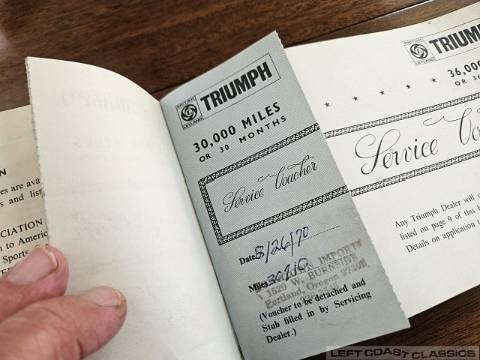 ON
es are ava
s and list
CIATION
n to Americ
Sports
BRITISH
LEYLAND
TRIUMPH
30,000 MILES
OR 30 MONTHS
Service Voucher
Date 5/26/70
Miles
IMPORTS
1620 W. BURNSIDE
Portland, Oregon
(Voucher to be detached and
Stub filled in by Servicing
Dealer.)
LEYLAND
TRIUM
36,0
OR 3
Service Vou
Any Triumph Dealer will
listed on page 9 of this
Details on application
LEFT COAST CLASSICS